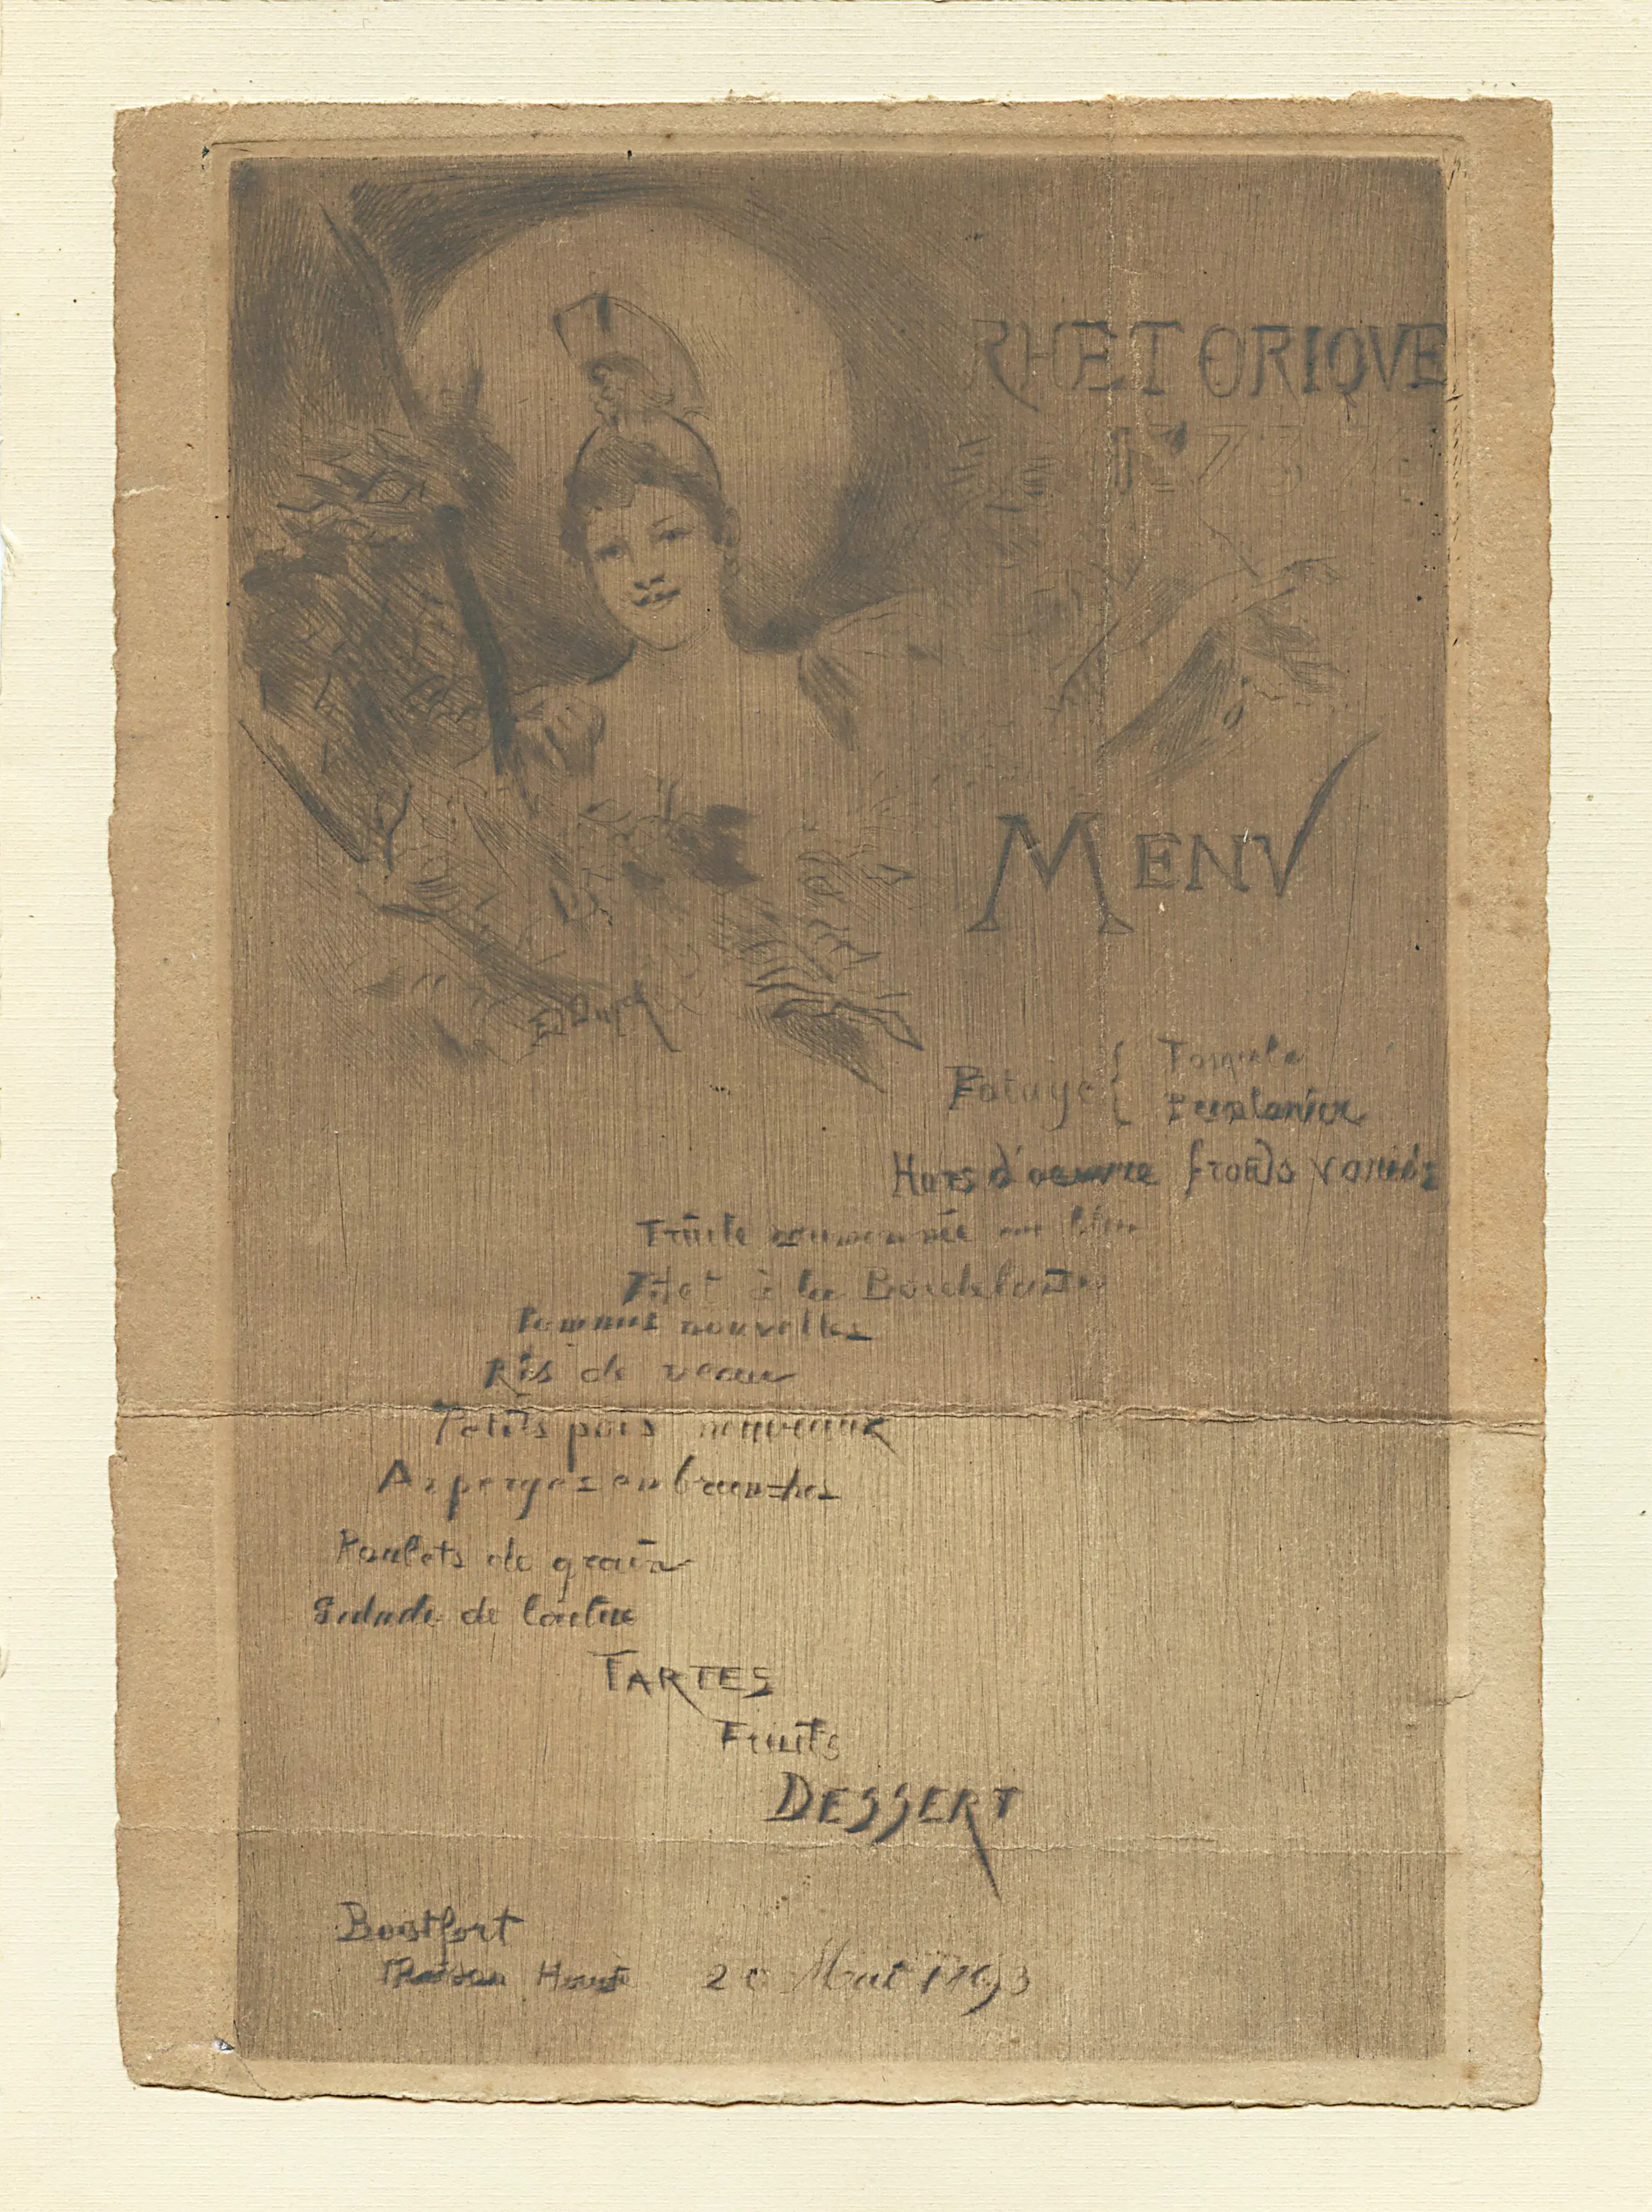 RHETORIQVE
MENV
Potage {
Hors d'oeuvre froids variés
Truite saumonnée au bleu
Filet à la Bordelaise
Pommes nouvelles
Ris de veau
Petits pois nouveaux
Asperges en branches
Poulets de grain
Salade de laitue
TARTES
Fruits
DESSERT
Boitsfort
Maison 20 Mai 1893